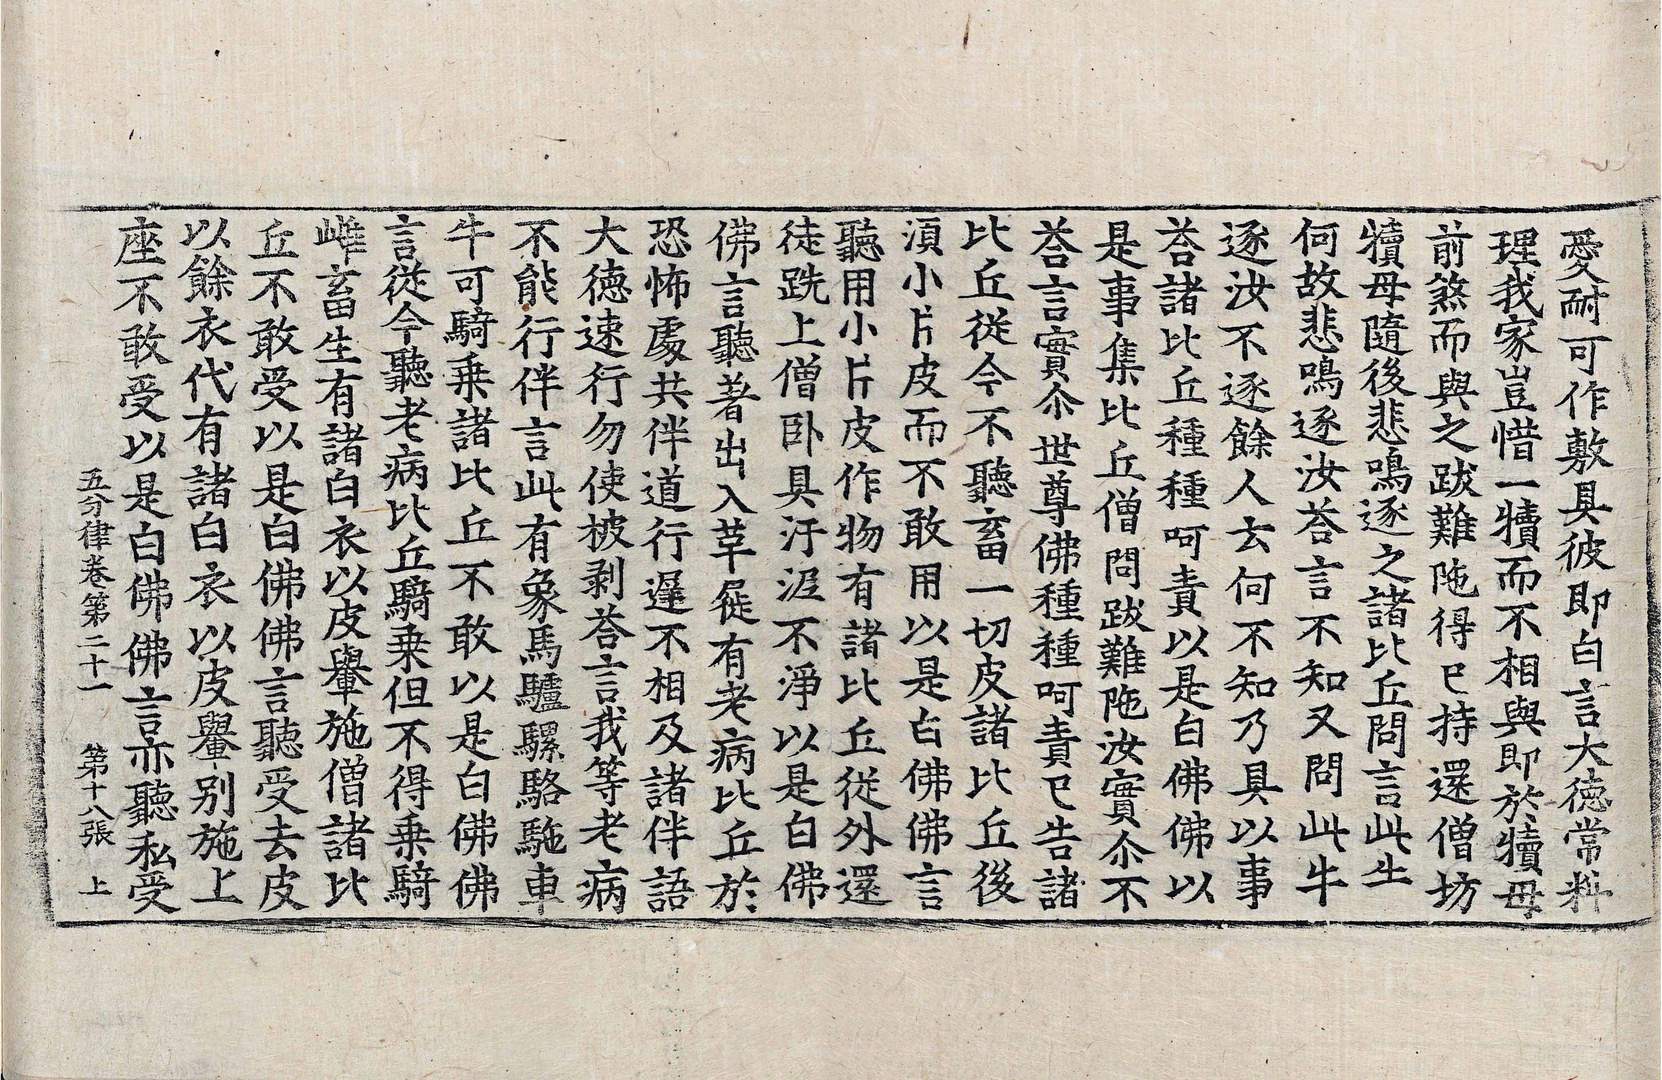 愛耐可作敷具彼即白言大德常料
理我家豈惜一犢而不相與即於犢母
前煞而與之跋難陁得已持還僧坊
犢母隨後悲鳴逐之諸比丘問言此牛
何故悲鳴逐汝荅言不知又問此牛
逐汝不逐餘人去何不知乃具以事
荅諸比丘種種呵責以是白佛佛以
是事集比丘僧問跋難陁汝實尒不
荅言實尒世尊佛種種呵責已告諸
比丘從今不聽畜一切皮諸比丘後
湏小片皮而不敢用以是白佛佛言
聽用小片皮作物有諸比丘從外還
徒跣上僧卧具汙泥不淨以是白佛
佛言聽著出入草屣有老病比丘於
恐怖處共伴道行遲不相及諸伴語
大德速行勿使被剥荅言我等老病
不能行伴言此有象馬驢騾駱駞車
牛可騎乗諸比丘不敢以是白佛佛
言從今聽老病比丘騎乗但不得乗騎
雌畜生有諸白衣以皮轝施僧諸比
丘不敢受以是白佛佛言聽受去皮
以餘衣代有諸白衣以皮轝別施上
座不敢受以是白佛佛言亦聽私受
五分律卷第二十一 第十八張 上